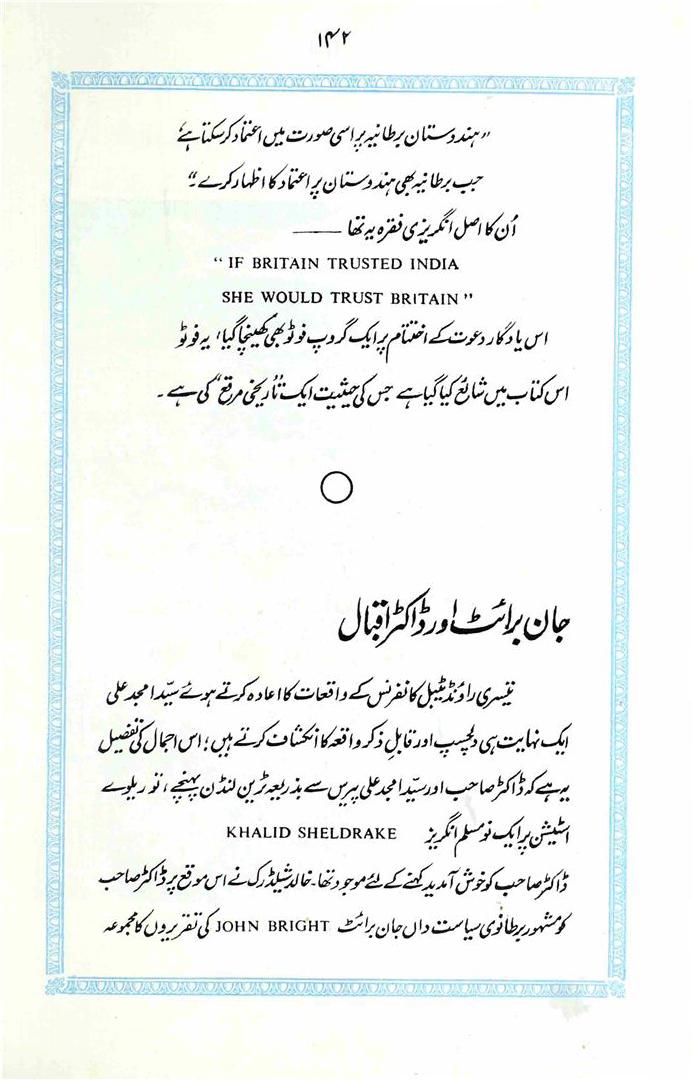 ۱۴۲
"ہندوستان برطانیہ پر اسی صورت میں اعتماد کر سکتا ہے
جب برطانیہ بھی ہندوستان پر اعتماد کا اظہار کرے۔"
اُن کا اصل انگریزی فقرہ یہ تھا ———
"IF BRITAIN TRUSTED INDIA
SHE WOULD TRUST BRITAIN"
اس یادگار دعوت کے اختتام پر ایک گروپ فوٹو بھی کھینچا گیا، یہ فوٹو
اس کتاب میں شائع کیا گیا ہے جس کی حیثیت ایک "تاریخی مرقع" کی ہے۔
جان برائٹ اور ڈاکٹر اقبال
تیسری راؤنڈ ٹیبل کانفرنس کے واقعات کا اعادہ کرتے ہوئے سیّد امجد علی
ایک نہایت ہی دلچسپ اور قابلِ ذکر واقعہ کا انکشاف کرتے ہیں؛ اس اجمال کی تفصیل
یہ ہے کہ ڈاکٹر صاحب اور سیّد امجد علی پیرس سے بذریعہ ٹرین لنڈن پہنچے، تو ریلوے
اسٹیشن پر ایک نو مسلم انگریز KHALID SHELDRAKE
ڈاکٹر صاحب کو خوش آمدید کہنے کے لئے موجود تھا۔ خالد شیلڈرک نے اس موقع پر ڈاکٹر صاحب
کو مشہور برطانوی سیاست داں جان برائٹ JOHN BRIGHT کی تقریروں کا مجموعہ